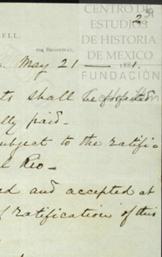 CENTRO DE
ESTUDIOS
DE HISTORIA
DE MEXICO
FUNDACIÓN
2
ELL.
BROADWAY,
May 21 — 1881.
ts shall be protested
lly paid.
subject to the ratifi-
l Rio-
ed and accepted at
f ratification of this